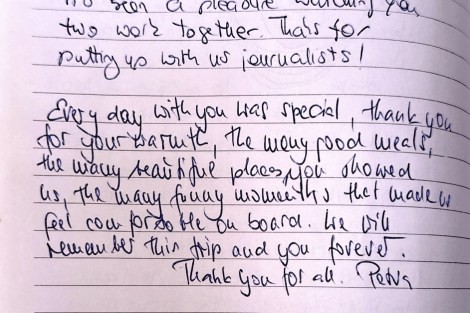 been a pleasure watching you
two work together. Thanks for
putting up with us journalists!
Every day with you was special, thank you
for your warmth, the many good meals,
the many beautiful places you showed
us, the many funny moments that made us
feel comfortable on board. We will
remember this trip and you forever.
Thank you for all. Petra